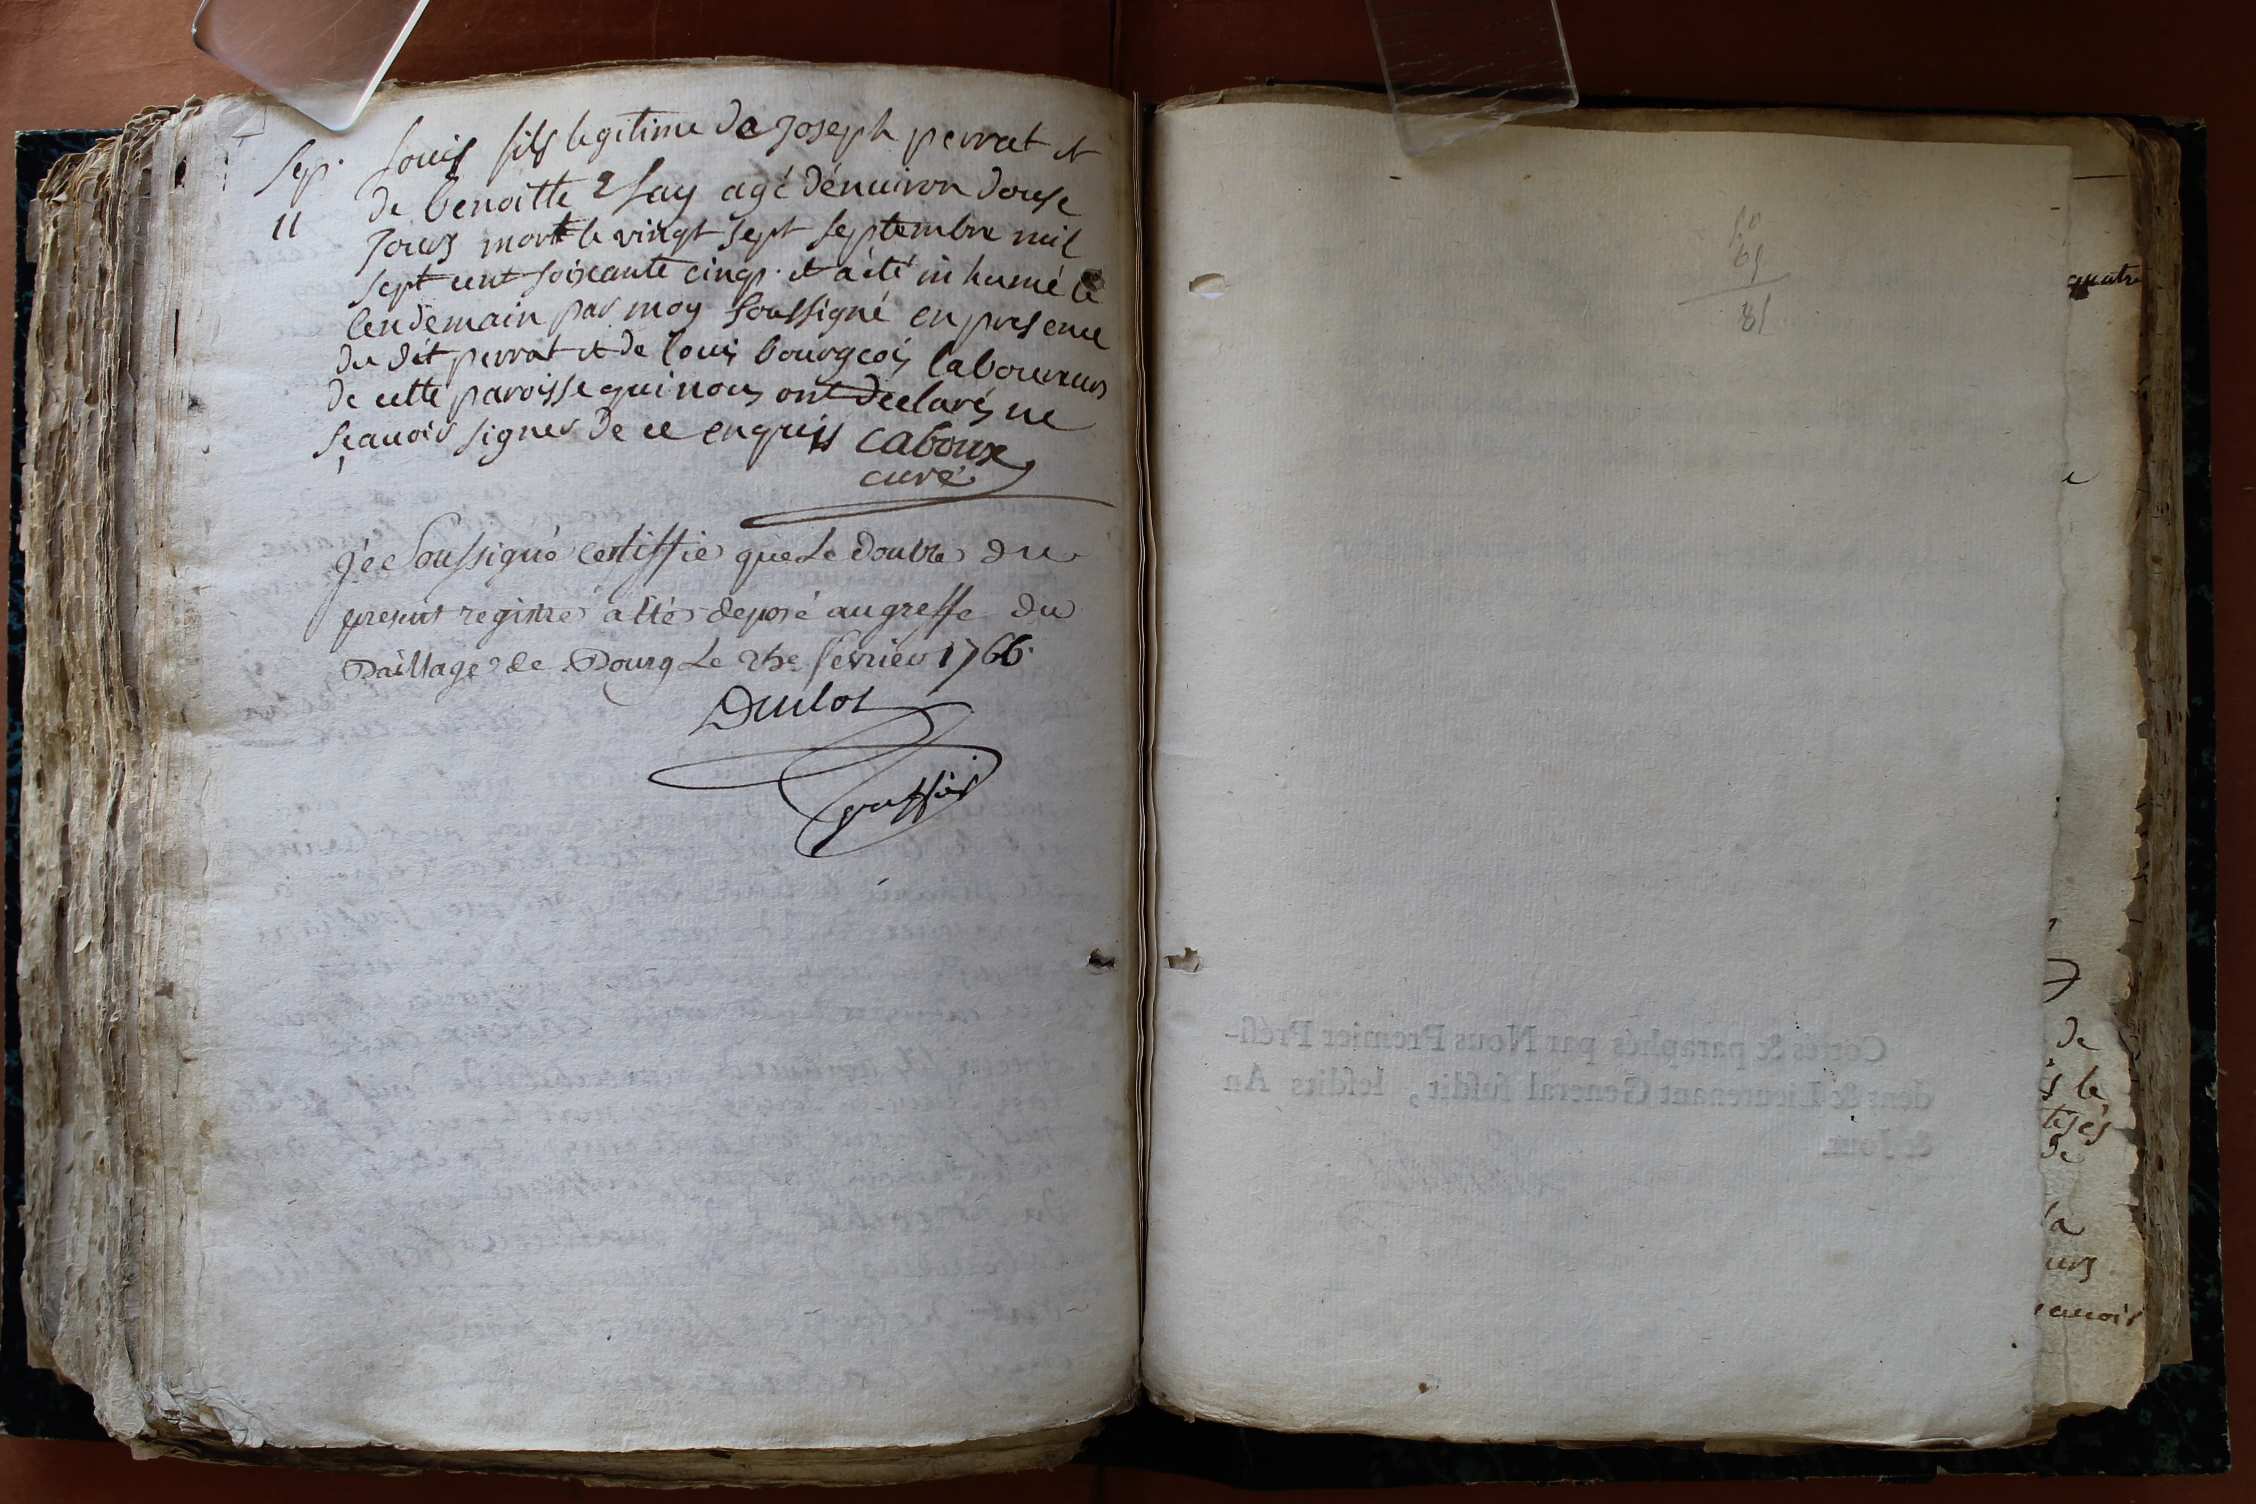 Sep. Louis fils legitime de Joseph perrat et
11 de benoitte Elay agé dénuiron douse
Jours mort le vingt sept septembre mil
sept cent soixante cinq. et a été inhumé le
lendemain par moy soussigné en presence
du dit perrat et de louis bourgeois laboureurs
de cette paroisse qui nous ont declarés ne
sçauoir signer de ce enquis Caboux
curé
Je Soussigné certiffie que Le double du
present registre a Eté deposé au greffe du
Baillage de Bourg Le 25e fevrier 1766.
Duclos
greffier
50
81
Cottés & paraphés par Nous Premier Prési-
dent & Lieutenant General susdit, lesdits An
& Jour.
quatre
de
le
de
la